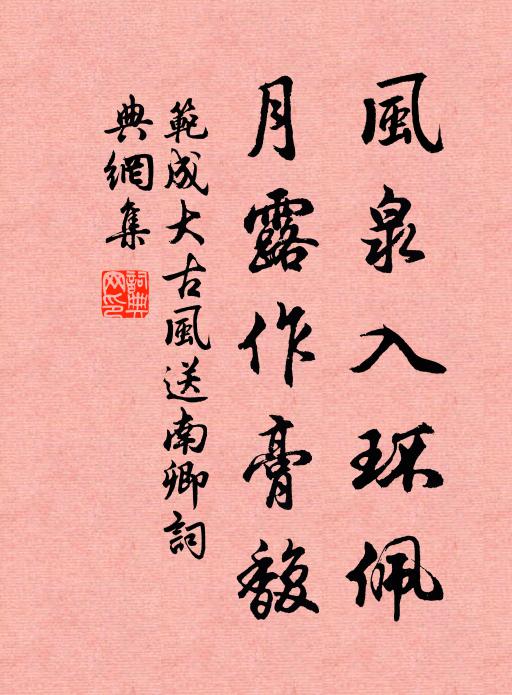 風泉入环佩
月露作膏馥
範成大古風送南卿詞
典網集
詞典網印